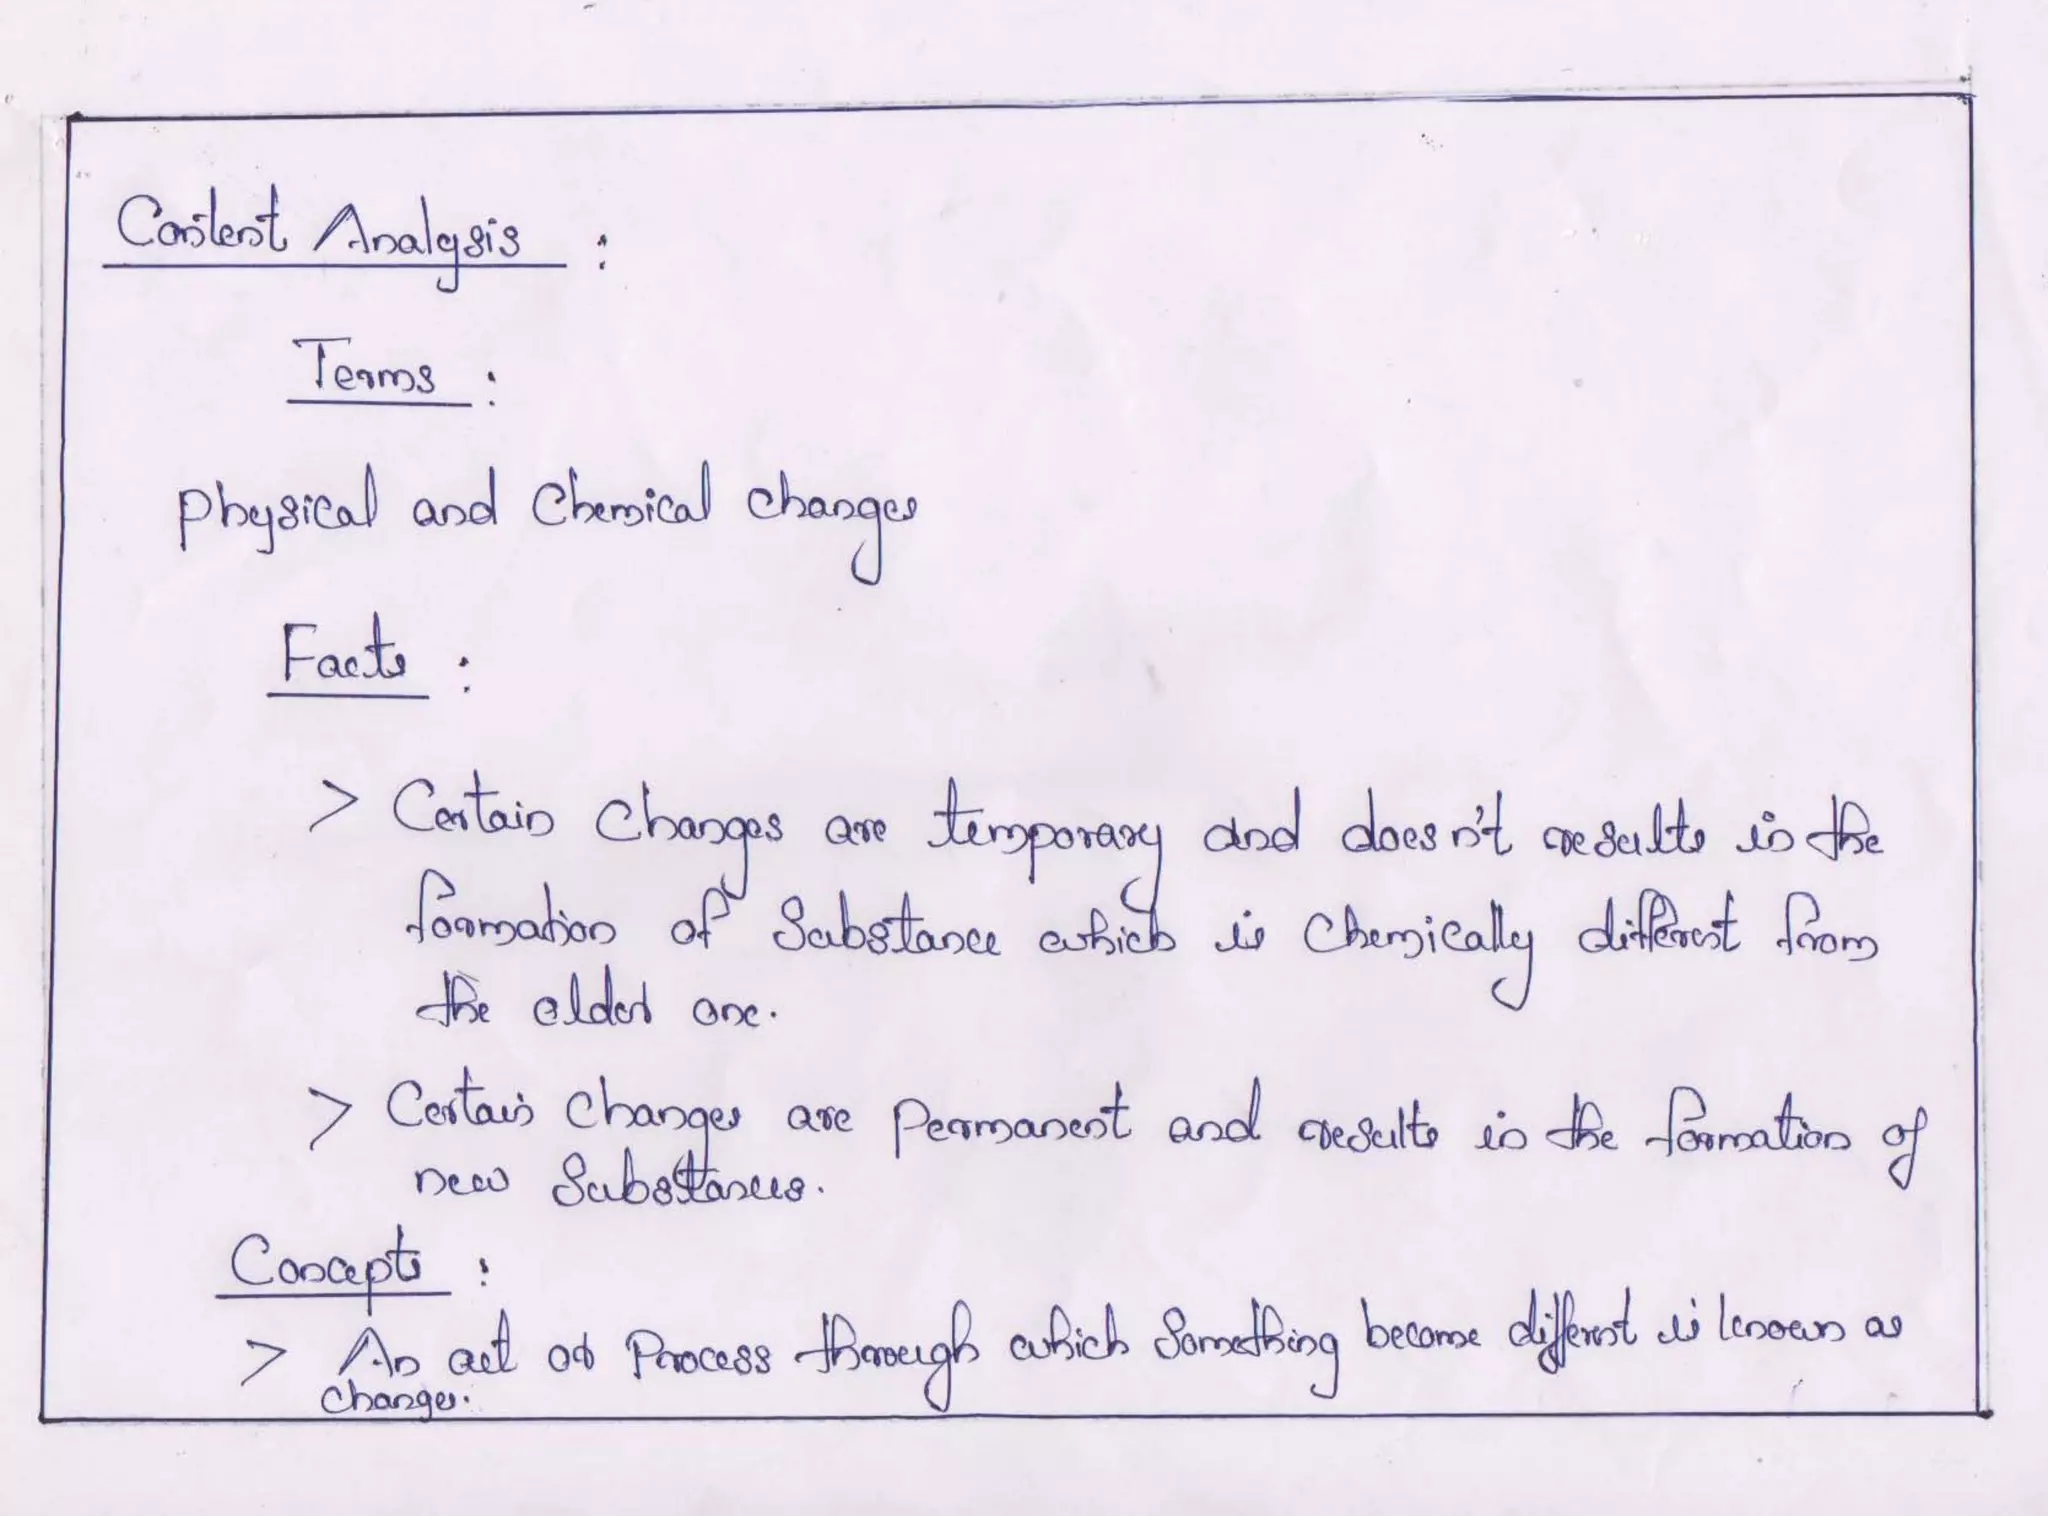 Content Analysis :
Terms :
Physical and Chemical changes
Facts :
> Certain changes are temporary and does n't results in the
formation of Substance which is Chemically different from
the older one.
> Certain changes are permanent and results in the formation of
new Substances.
Concepts :
> An act or Process through which Something become different is known as
changes.